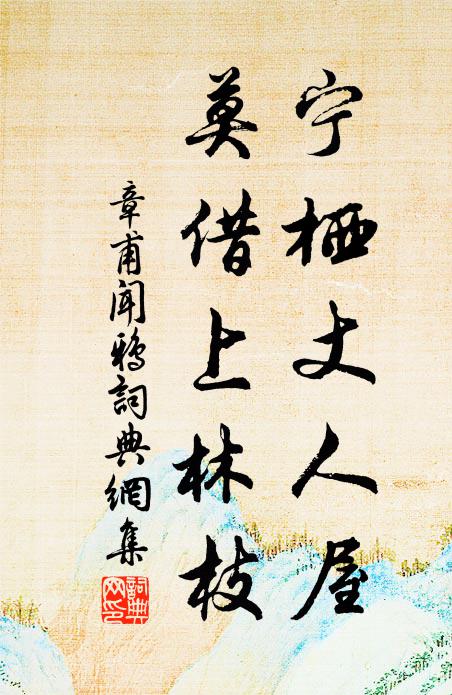 宁栖丈人屋
莫借上林枝
章甫闻鸦詞典網集
詞典网印